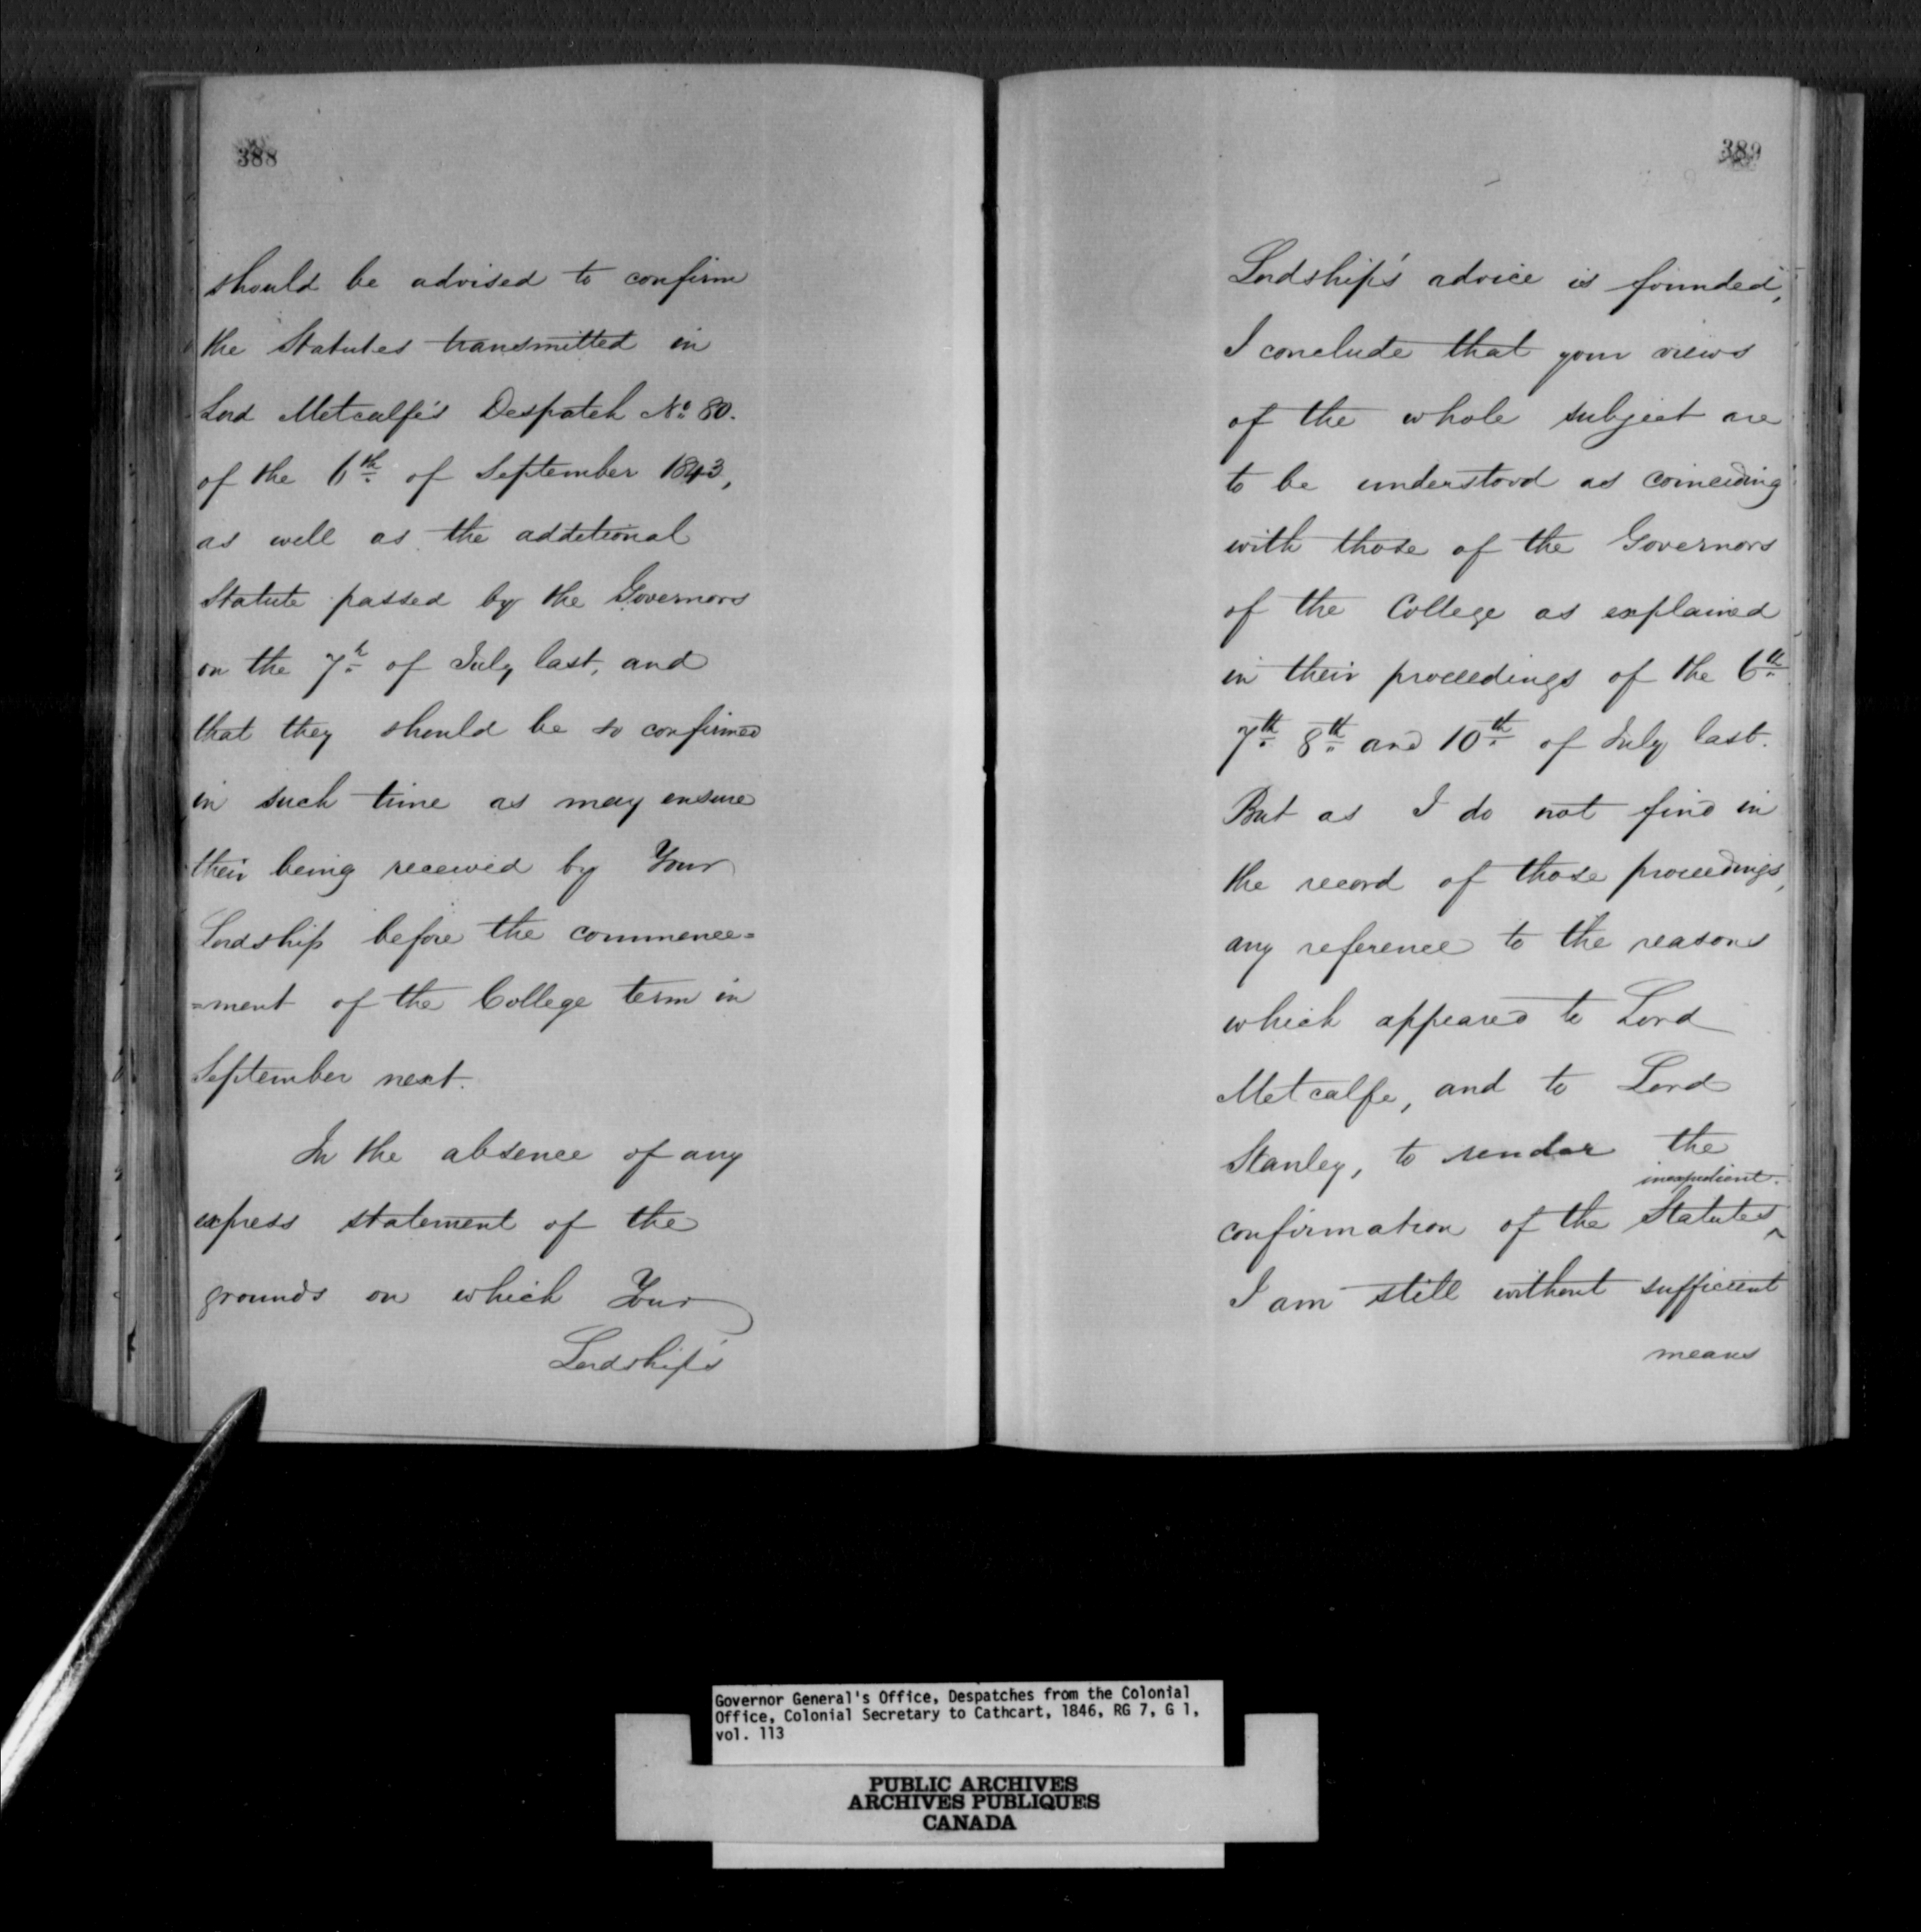 388
should be advised to confirm
the Statutes transmitted in
Lord Metcalfe's Despatch No. 80.
of the 6th of September 1843,
as well as the additional
Statute passed by the Governors
on the 7th of July last, and
that they should be so confirmed
in such time as may ensure
their being received by Your
Lordship before the commence=
=ment of the College term in
September next.
In the absence of any
express statement of the
grounds on which Your
Lordship's
389
Lordship's advice is founded,
I conclude that your views
of the whole subject are
to be understood as coinciding
with those of the Governors
of the College as explained
in their proceedings of the 6th
7th 8th and 10th of July last.
But as I do not find in
the record of those proceedings,
any reference to the reasons
which appeared to Lord
Metcalfe, and to Lord
Stanley, to render the
inexpedient.
confirmation of the Statutes ^
I am still without sufficient
means
Governor General's Office, Despatches from the Colonial
Office, Colonial Secretary to Cathcart, 1846, RG 7, G 1,
vol. 113
PUBLIC ARCHIVES
ARCHIVES PUBLIQUES
CANADA